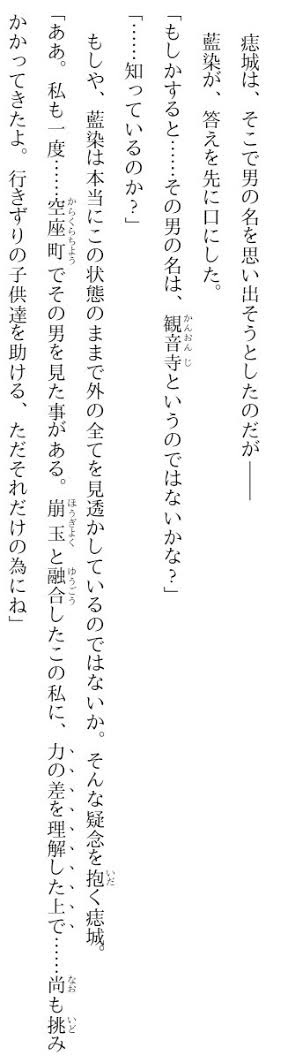 痣城は、そこで男の名を思い出そうとしたのだが――
藍染が、答えを先に口にした。
「もしかすると……その男の名は、観音寺というのではないかな?」
「……知っているのか?」
もしや、藍染は本当にこの状態のままで外の全てを見透かしているのではないか。そんな疑念を抱く痣城。
「ああ。私も一度……空座町でその男を見た事がある。崩玉と融合したこの私に、力の差を理解した上で……尚も挑み
かかってきたよ。行きずりの子供達を助ける、ただそれだけの為にね」